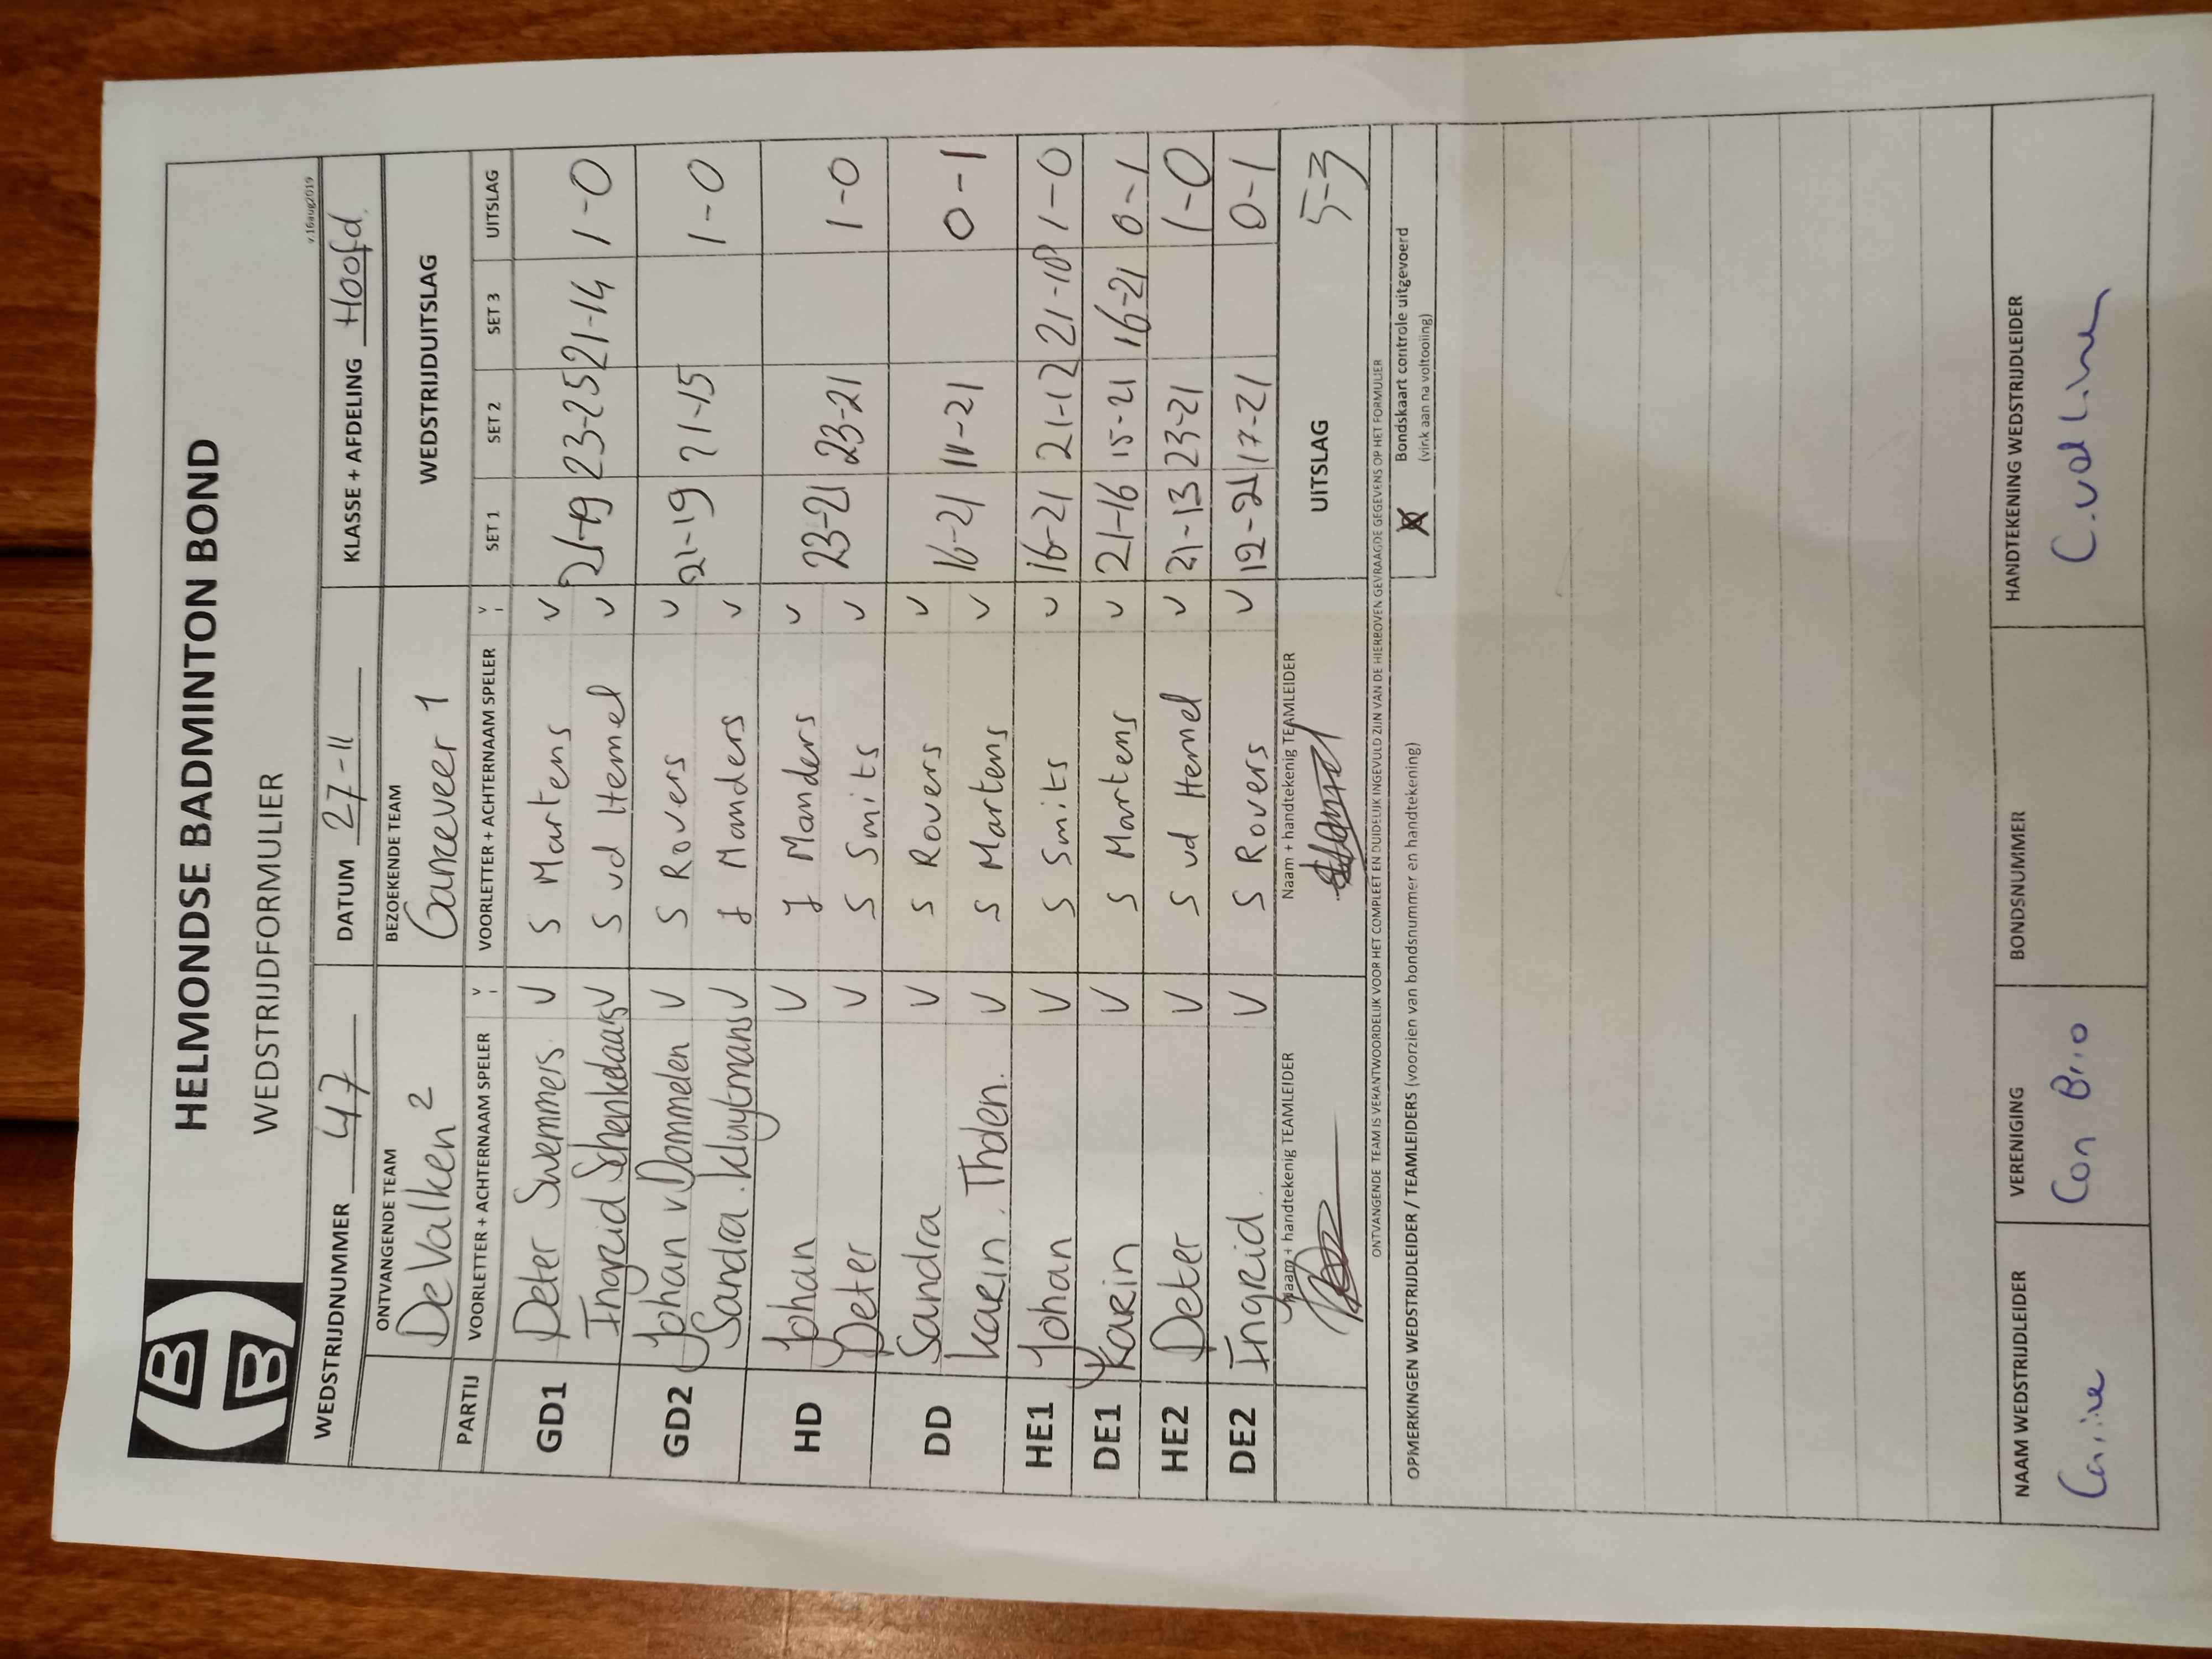 HELMONDSE BADMINTON BOND
WEDSTRIJDFORMULIER
v.16aug2019
WEDSTRIJDNUMMER 47 DATUM 27-11 KLASSE + AFDELING Hoofd
ONTVANGENDE TEAM BEZOEKENDE TEAM WEDSTRIJDUITSLAG
De Valken 2 Ganzeveer 1
PARTIJ VOORLETTER + ACHTERNAAM SPELER VOORLETTER + ACHTERNAAM SPELER SET 1 SET 2 SET 3 UITSLAG
GD1 Peter Swemmers V S Martens V 21-19 23-25 21-14 1-0
Ingrid Schenkelaars V S vd Hemel V
GD2 Johan v Dommelen V S Rovers V 21-19 21-15 1-0
Sandra Kluytmans V J Manders V
HD Johan V J Manders V 23-21 23-21 1-0
Peter V S Smits V
DD Sandra V S Rovers V 16-21 14-21 0-1
Karin Tholen. V S Martens V
HE1 Johan V S Smits V 16-21 21-12 21-18 1-0
DE1 Karin V S Martens V 21-16 15-21 16-21 0-1
HE2 Peter V S vd Hemel V 21-13 23-21 1-0
DE2 Ingrid. V S Rovers V 12-21 17-21 0-1
Naam + handtekenig TEAMLEIDER Naam + handtekenig TEAMLEIDER UITSLAG 5-3
ONTVANGENDE TEAM IS VERANTWOORDELIJK VOOR HET COMPLEET EN DUIDELIJK INGEVULD ZIJN VAN DE HIERBOVEN GEVRAAGDE GEGEVENS OP HET FORMULIER
OPMERKINGEN WEDSTRIJDLEIDER / TEAMLEIDERS (voorzien van bondsnummer en handtekening) X Bondskaart controle uitgevoerd
(vink aan na voltooiing)
NAAM WEDSTRIJDLEIDER VERENIGING BONDSNUMMER HANDTEKENING WEDSTRIJDLEIDER
Con Brio